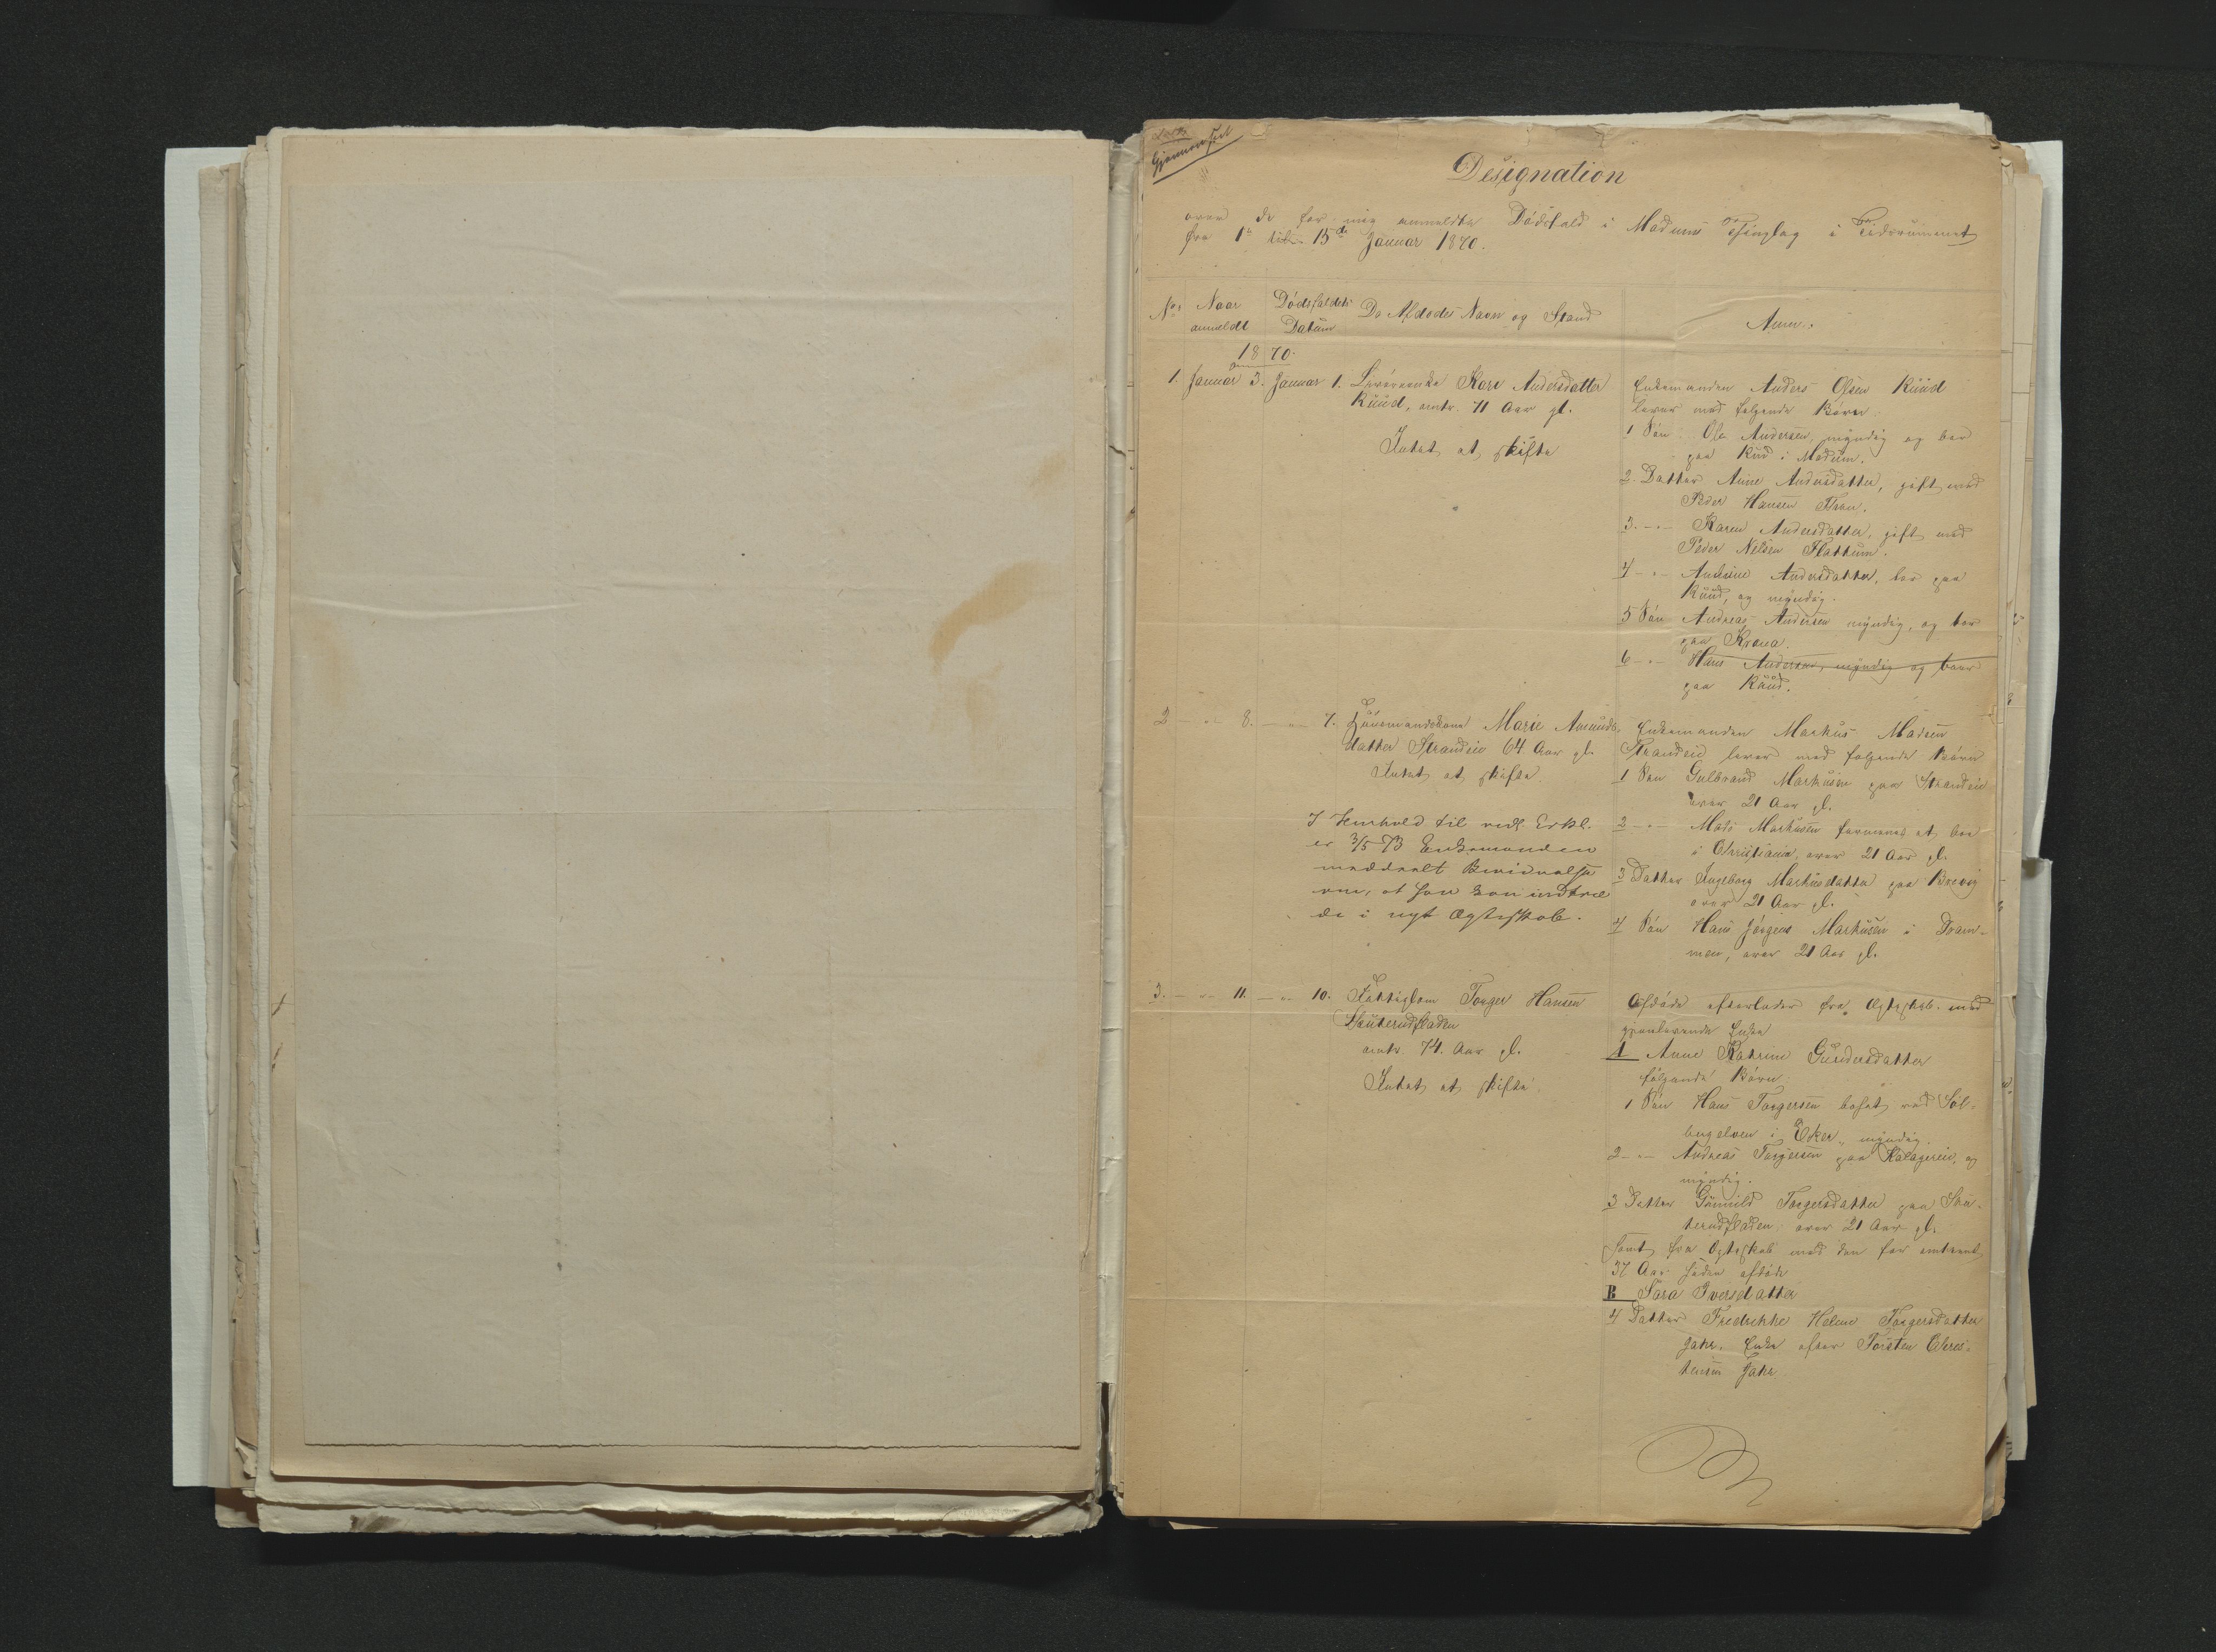 Gjennemseet
Designation
over de for mig anmeldte Dödsfald i Modums Thinglag i Tidsrummet
fra 1te til 15de Januar 1870.
No. Naar anmeldt Dödsfaldets Datum De Afdödes Navn og Stand Anm.
1870.
1. Januar 3. Januar 1. Livörenke Kari Andersdatter
Ruud, omtr. 71 Aar gl.
Intet at skifte
Enkemanden Anders Olsen Ruud
lever med følgende Börn:
1 Sön Ole Andersen, myndig og bor
paa Ruud i Modum.
2. Datter Anne Andersdatter, gift med
Peder Hansen
3. -"- Karen Andersdatter, gift med
Peder Nilsen Flattum.
4 -"- Andrine Andersdatter, bor paa
Ruud, og myndig.
5 Sön Andreas Andersen myndig, og bor
paa Krona.
6 -"- Hans Andersen, myndig og boer
paa Ruud.
2 -"- 8. -"- 7. Huusmandskone Marie Amunds-
datter Strandeie 64 Aar gl.
Intet at skifte.
I Henhold til vedl. Erkl.
er 3/5 73 Enkemanden
meddeelt Bevidnelse
om, at han kan indtræ
de i nyt Ægteskab.
Enkemanden Markus Madsen
Strandeie lever med følgende Börn
1 Sön Gulbrand Markusen paa Strandeie
over 21 Aar gl.
2 -"- Mads Markusen formenes at boe
i Christiania, over 21 Aar gl.
3 Datter Ingeborg Markusdatter paa Brevig
over 21 Aar gl.
4 Sön Hans Jörgen Markusen i Dram-
men, over 21 Aar gl.
3. -"- 11. -"- 10. Fattiglem Torger Hansen
Skuterudfladen
omtr. 74 Aar gl.
Intet at skifte.
Afdöde efterlader fra Ægteskab med
gjenlevende Enke
A Anne Katrine Gundersdatter
følgende Börn:
1 Sön Hans Torgersen bosat ved Söl-
i Eker, myndig.
2 -"- Andreas Torgersen paa og
myndig.
3 Datter Gunnild Torgersdatter paa Sku-
terudfladen, over 21 Aar gl.
samt fra Ægteskab med den for omtrent
37 Aar siden afdöde
B Sara Iversdatter
4 Datter Fredrikke Helene Torgersdatter
Jahr, Enke efter Torsten Chris-
tensen Jahr.